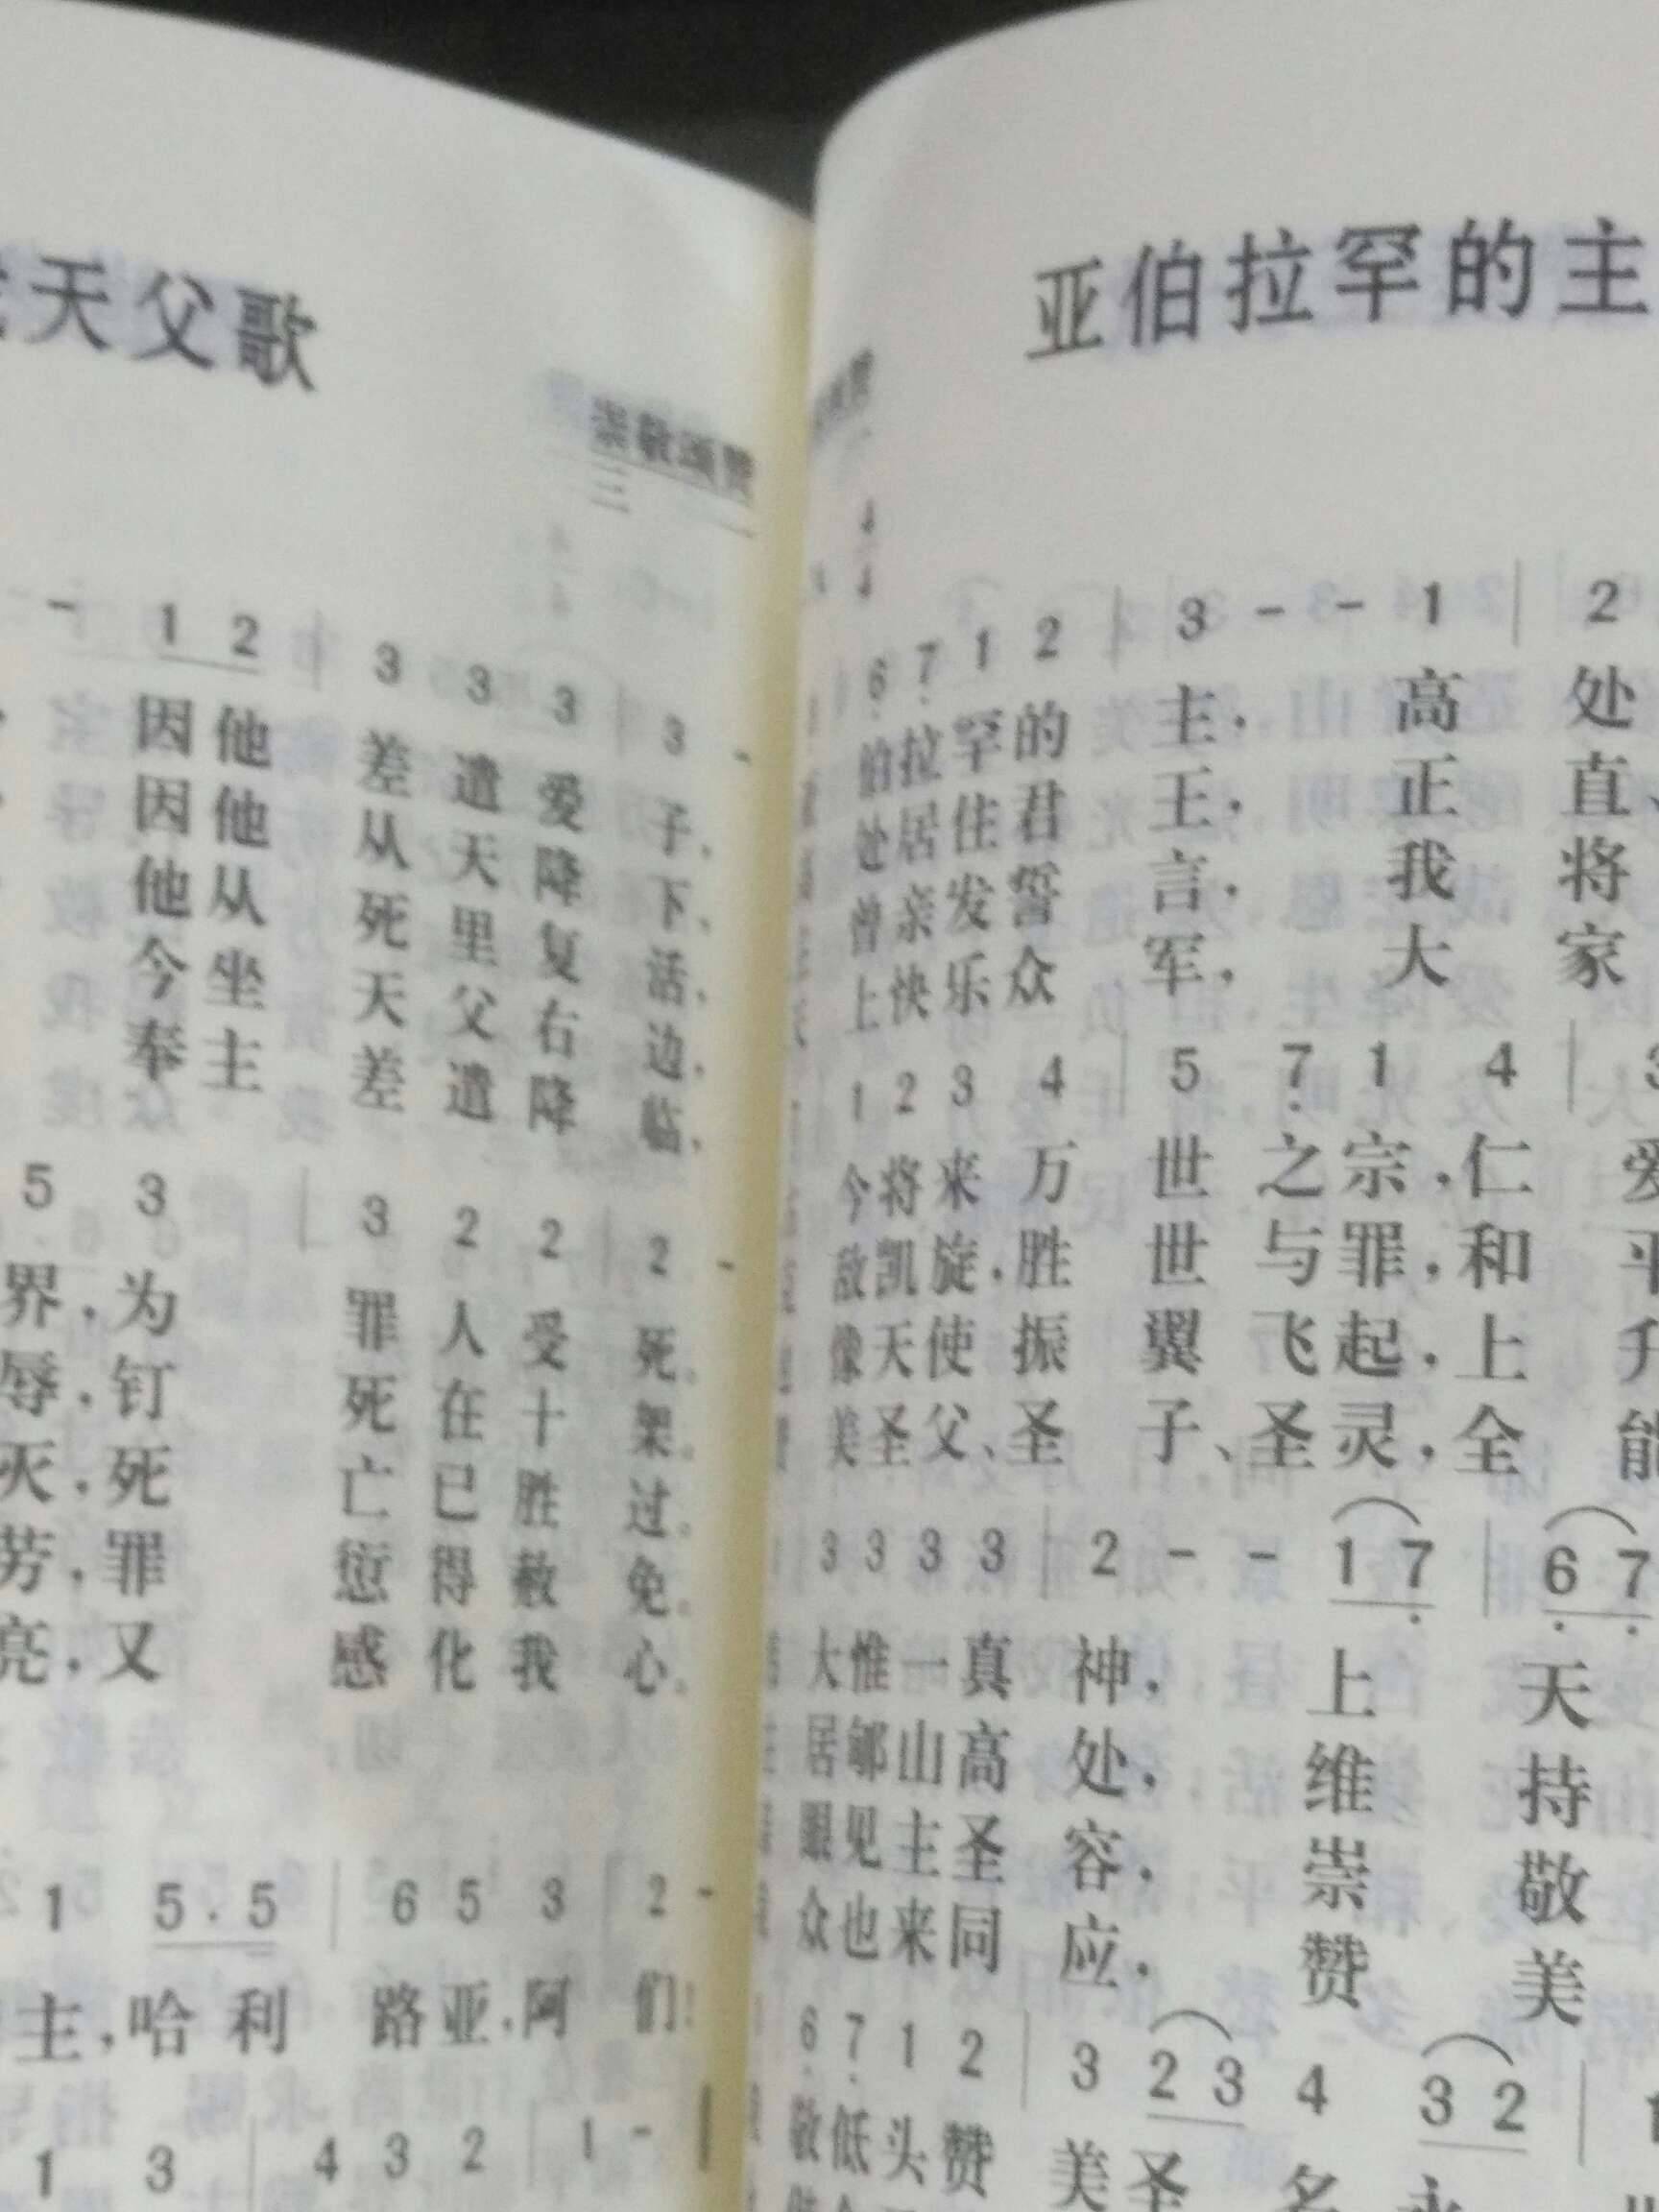 天父歌
崇敬颂赞
三
- 1 2 3 3 3 3 -
因他 差遣爱子,
因他 从天降下,
他从 死里复活,
今坐 天父右边,
奉主 差遣降临,
5 3 3 2 2 2 -
界,为 罪人受死。
辱,钉 死在十架。
灭,死 亡已胜过。
劳,罪 愆得赦免。
亮,又 感化我心。
1 5. 5 6 5 3 2 -
主,哈利 路亚,阿们!
1 3 4 3 2 1 -
亚伯拉罕的主
4
4
6 7 1 2 3 - - 1 2
伯拉罕的主,高处
处居住君王,正直、
曾亲发誓言,我将
上快乐众军,大家
1 2 3 4 5 7 1 4 3
今将来万世之宗,仁爱
敌凯旋,胜世与罪,和平
像天使振翼飞起,上升
美圣父、圣子、圣灵,全能
3 3 3 3 2 - - 1 7 6 7
大惟一真神,上天
居郇山高处,维持
眼见主圣容,崇敬
众也来同应,赞美
6 7 1 2 3 2 3 4 3 2
敬低头赞美圣名